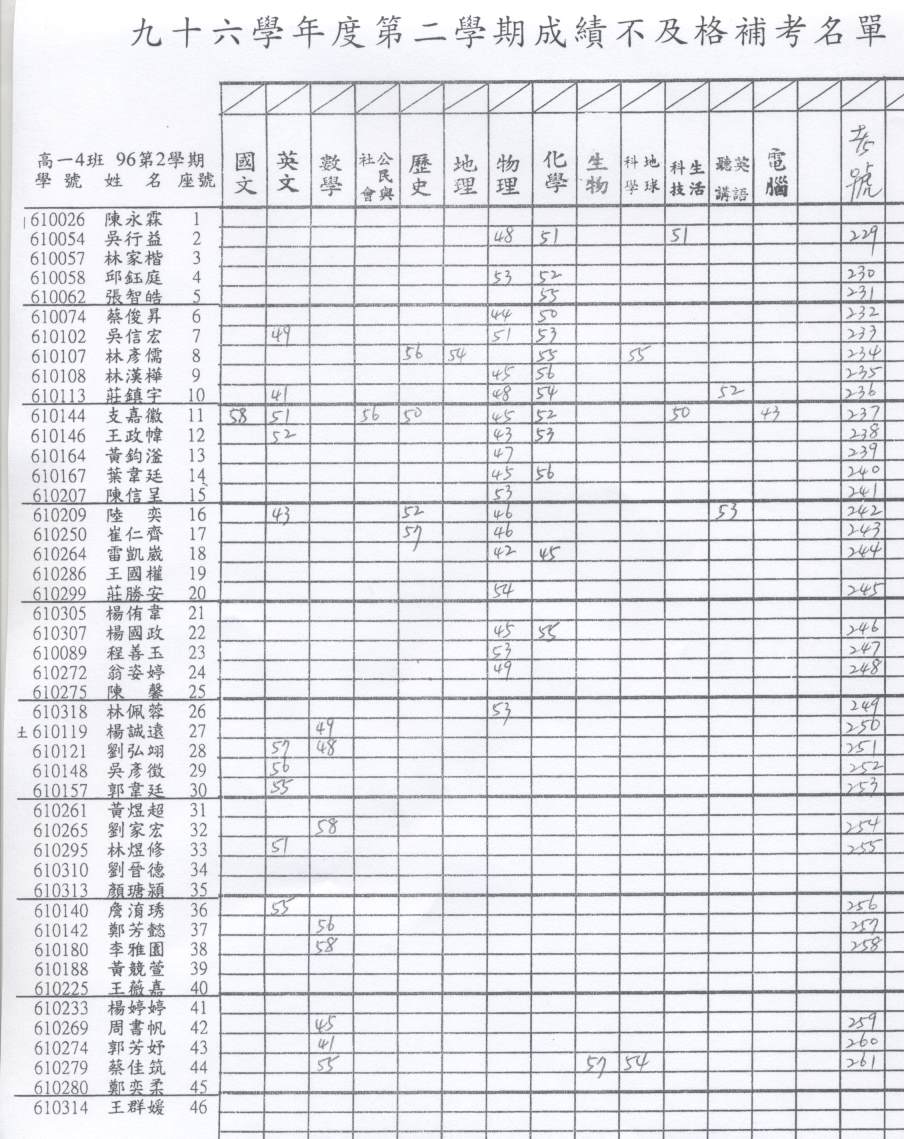 九十六學年度第二學期成績不及格補考名單
高一4班 96第2學期
學號 姓名 座號 國文 英文 數學 公民與社會 歷史 地理 物理 化學 生物 地球科學 生活科技 英語聽講 電腦 號
610026 陳永霖 1
610054 吳行益 2 48 51 51 229
610057 林家楷 3
610058 邱鈺庭 4 53 52 230
610062 張智皓 5 55 231
610074 蔡俊昇 6 44 50 232
610102 吳信宏 7 49 51 53 233
610107 林彥儒 8 56 54 55 55 234
610108 林漢樺 9 45 56 235
610113 莊鎮宇 10 41 48 54 52 236
610144 支嘉徽 11 58 51 56 50 45 52 50 43 237
610146 王政幃 12 52 43 53 238
610164 黃鈞滏 13 47 239
610167 葉韋廷 14 45 56 240
610207 陳信呈 15 53 241
610209 陸奕 16 43 52 46 53 242
610250 崔仁齊 17 57 46 243
610264 雷凱崴 18 42 45 244
610286 王國權 19
610299 莊勝安 20 54 245
610305 楊侑韋 21
610307 楊國政 22 45 55 246
610089 程善玉 23 53 247
610272 翁姿婷 24 49 248
610275 陳馨 25
610318 林佩蓉 26 53 249
土 610119 楊誠遠 27 49 250
610121 劉弘翊 28 57 48 251
610148 吳彥徵 29 56 252
610157 郭韋廷 30 55 253
610261 黃煜超 31
610265 劉家宏 32 58 254
610295 林煜修 33 51 255
610310 劉晉德 34
610313 顏瑭潁 35
610140 詹淯琇 36 55 256
610142 鄭芳懿 37 56 257
610180 李雅圓 38 58 258
610188 黃競萱 39
610225 王薇嘉 40
610233 楊婷婷 41
610269 周書帆 42 45 259
610274 郭芳妤 43 41 260
610279 蔡佳筑 44 55 57 54 261
610280 鄭奕柔 45
610314 王群媛 46